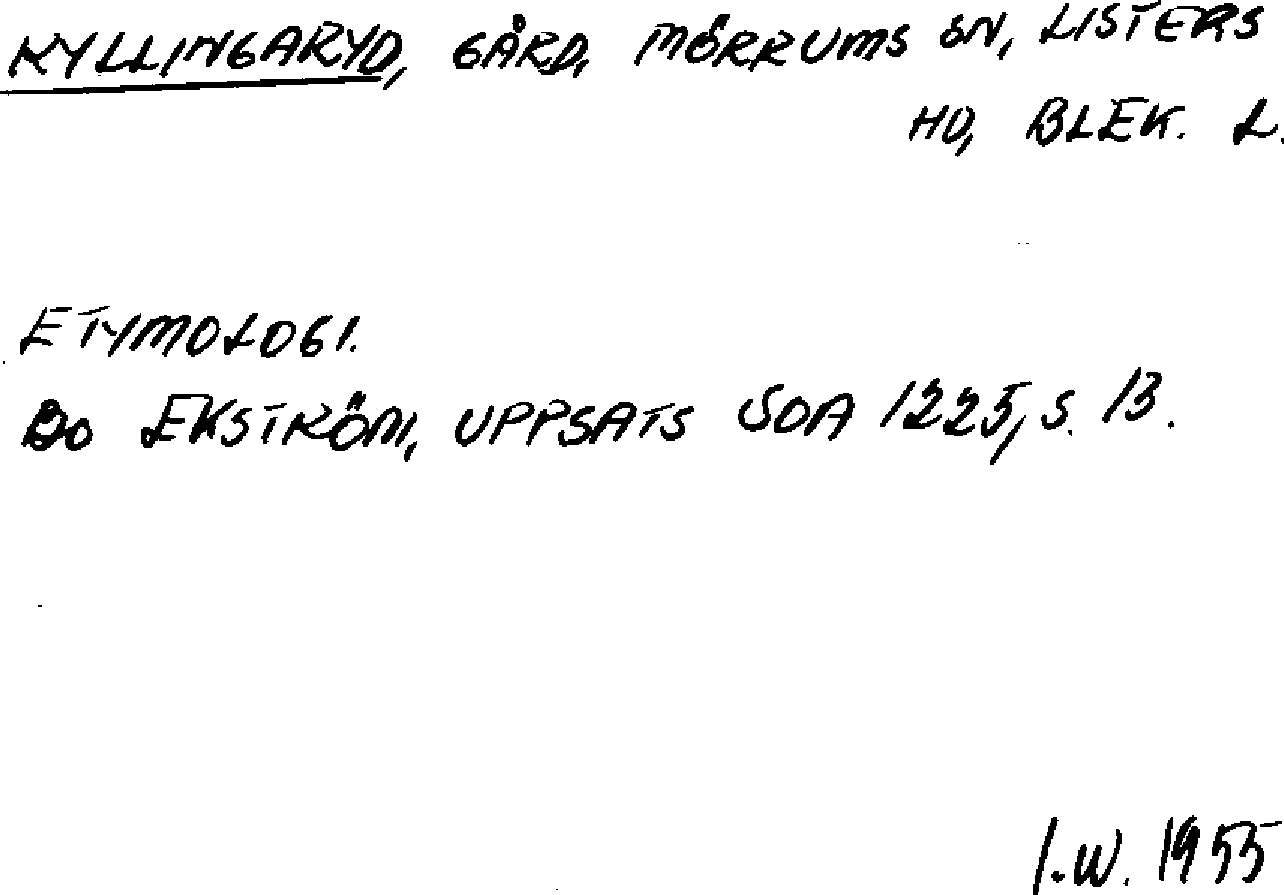 KYLLINGARYD, GÅRD, MÖRRUMS SN, LISTERS
HD, BLEK. L.
ETYMOLOGI.
BO EKSTRÖM, UPPSATS SOA 1225, S. 13.
I.W. 1955